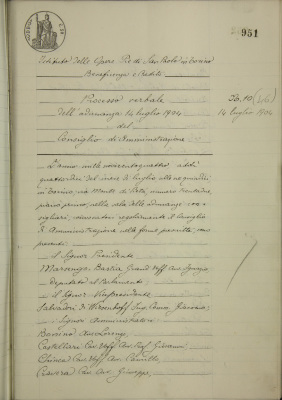 951
Istituto delle Opere Pie di San Paolo in Torino
Beneficenza e Credito
Processo verbale
dell'adunanza 14 luglio 1904
del
Consiglio di Amministrazione
14 luglio 1904
L'anno mille novecentoquattro, addì
quattordici del mese di luglio alle ore quindici
in Torino, via Monte di Pietà, numero trentadue,
piano primo, nella sala delle adunanze con-
sigliari, convocatosi regolarmente il Consiglio
di Amministrazione nelle forme prescritte, sono
presenti:
il Signor Presidente
Marsengo Bastia Grand'Uff. Avv. Ignazio,
deputato al Parlamento
il Signor Vicepresidente
Salvadori di Wiesenhoff
i Signori Amministratori
Bavino Avv. Lorenzo
Castellari Cav. Uff. Avv. Prof. Giovanni
Chiesa Cav. Uff. Avv. Camillo
Cav. Avv. Giuseppe